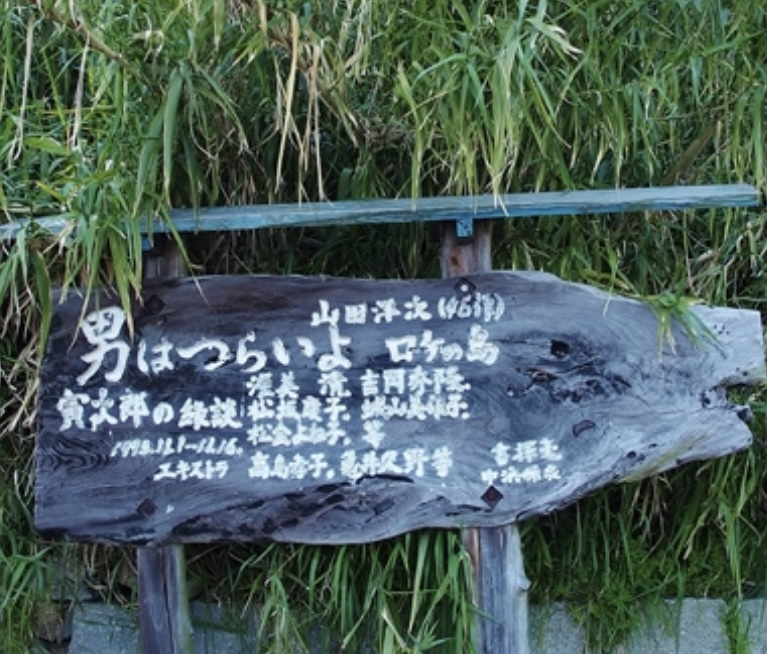 山田洋次(46作)
男はつらいよ ロケの島
渥美 清, 吉岡秀隆,
寅次郎の縁談 松坂慶子, 城山美佳子,
松金よね子, 等
1993.12.1~12.16.
エキストラ 高島孝子, 亀井久野等